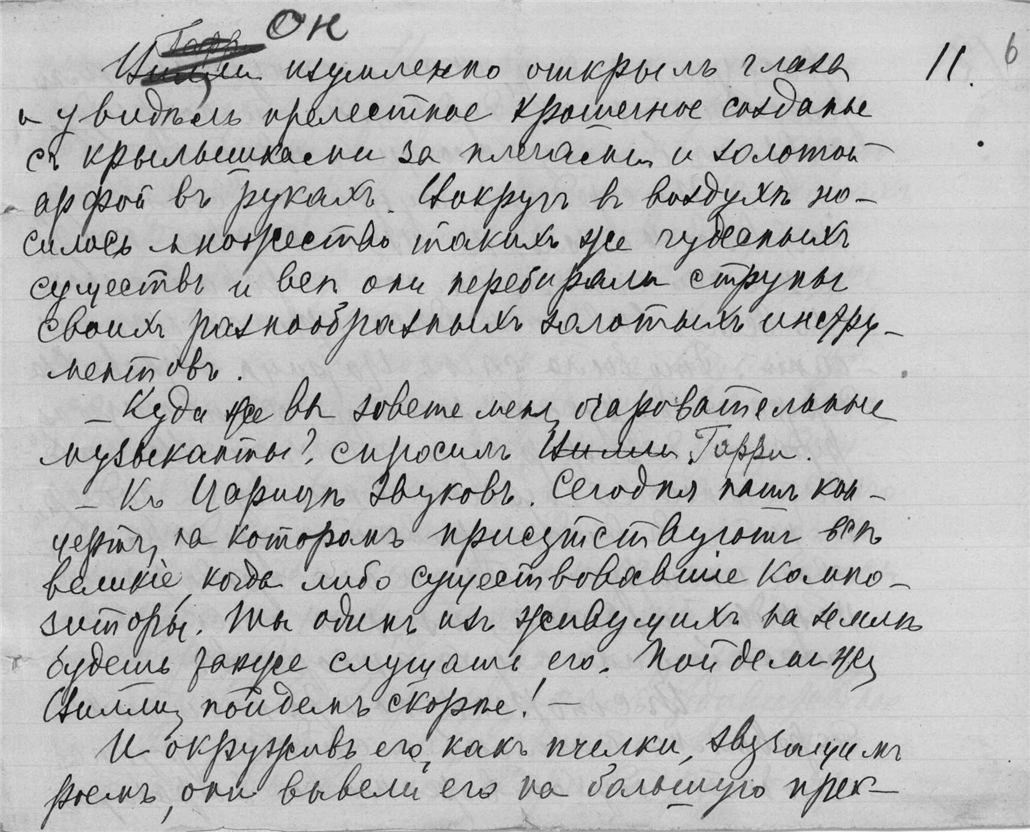 Он
Гарри
Вилли изумленно открылъ глаза 11. 6
и увидѣлъ прелестное крошечное созданье
съ крылышками за плечами и золотой
арфой въ рукахъ. Вокругъ въ воздухѣ но-
силось множество такихъ же чудесныхъ
существъ и всѣ они перебирали струны
своихъ разнообразныхъ золотыхъ инстру-
ментовъ.
– Куда же вы зовете меня, очаровательные
музыканты?, спросилъ Вилли Гарри.
– Къ Царицѣ Звуковъ. Сегодня нашъ кон-
цертъ, на которомъ присутствуютъ всѣ
великіе, когда либо существовавшіе компо-
зиторы. Ты одинъ изъ живущихъ на землѣ
будешь также слушать его. Пойдемъ же,
Вилли, пойдемъ скорѣе! –
И окруживъ его, какъ пчелки, звучащимъ
роемъ, они вывели его на большую прек-